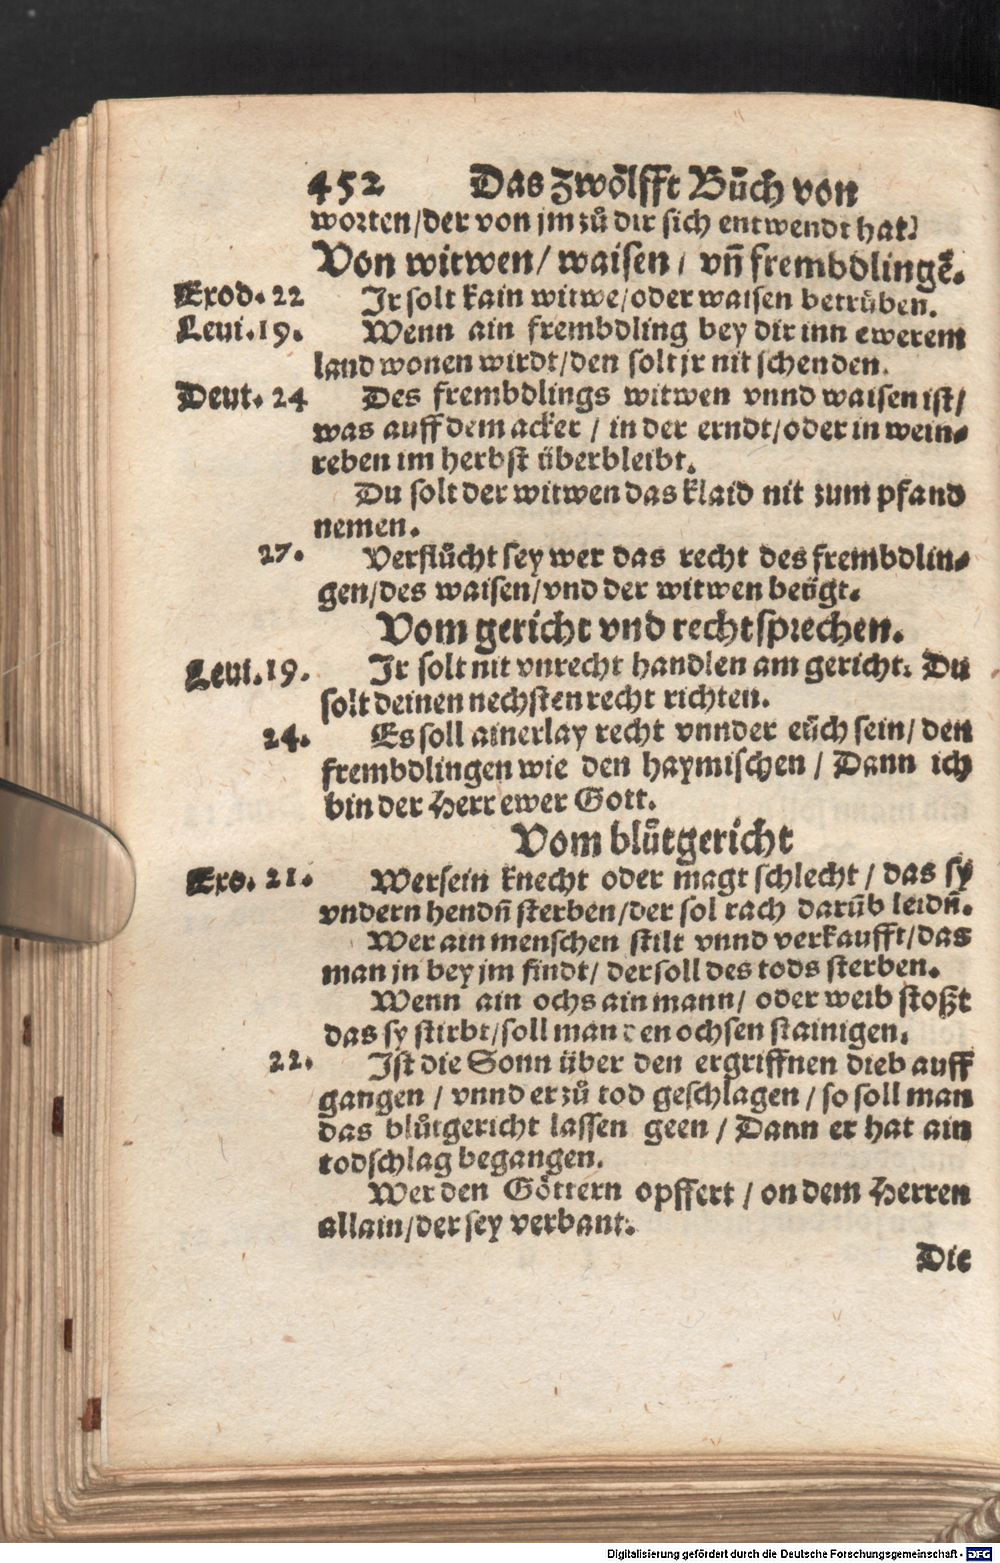 452 Das zwölfft Bůch von
worten/der von jm zů dir sich entwendt hat.
Von witwen/ waisen / vñ frembdlingẽ.
Exod. 22 Jr solt kain witwe/oder waisen betrüben.
Leui. 19. Wenn ain frembdling bey dir inn ewerem
land wonen wirdt/den solt jr nit schenden.
Deut. 24 Des frembdlings witwen vnnd waisen ist/
was auff dem acker / in der erndt/oder in wein⸗
reben im herbst überbleibt.
Du solt der witwen das klaid nit zum pfand
nemen.
27. Verflůcht sey wer das recht des frembdlin⸗
gen/des waisen/vnd der witwen beügt.
Vom gericht vnd rechtsprechen.
Leui. 19. Jr solt nit vnrecht handlen am gericht. Du
solt deinen nechsten recht richten.
24. Es soll ainerlay recht vnnder eüch sein/ den
frembdlingen wie den haymischen / Dann ich
bin der Herr ewer Gott.
Vom blůtgericht
Exo. 21. Wer sein knecht oder magt schlecht / das sy
vndern hendñ sterben/der sol rach darũb leidñ.
Wer ain menschen stilt vnnd verkaufft/das
man jn bey jm findt/ der soll des tods sterben.
Wenn ain ochs ain mann/ oder weib stoßt
das sy stirbt/soll man den ochsen stainigen.
22. Ist die Sonn über den ergriffnen dieb auff
gangen / vnnd er zů tod geschlagen / so soll man
das blůtgericht lassen geen / Dann er hat ain
todschlag begangen.
Wer den Göttern opffert / on dem Herren
allain/der sey verbant.
Die
Digitalisierung gefördert durch die Deutsche Forschungsgemeinschaft - DFG